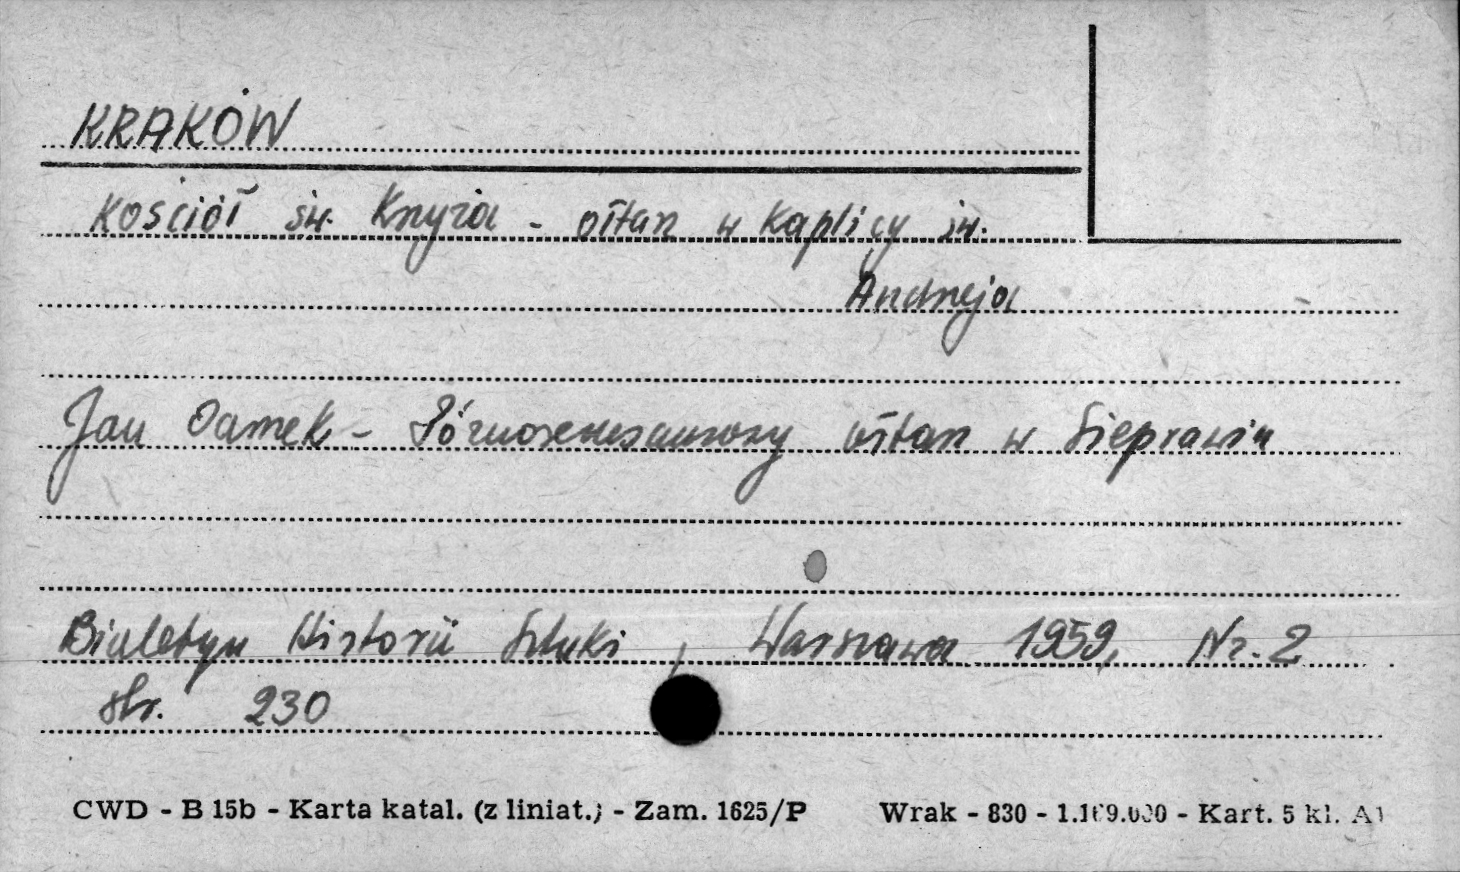 KRAKÓW
Kościół św. Krzyża - ołtarz w Kaplicy św.
Andrzeja
Jan Samek - Późnorenesansowy ołtarz w Sieprawiu
Biuletyn Historii Sztuki, Warszawa 1959, Nr. 2
str. 230
CWD - B 15b - Karta katal. (z liniat.) - Zam. 1625/P Wrak - 830 - - Kart. 5 kl. A1